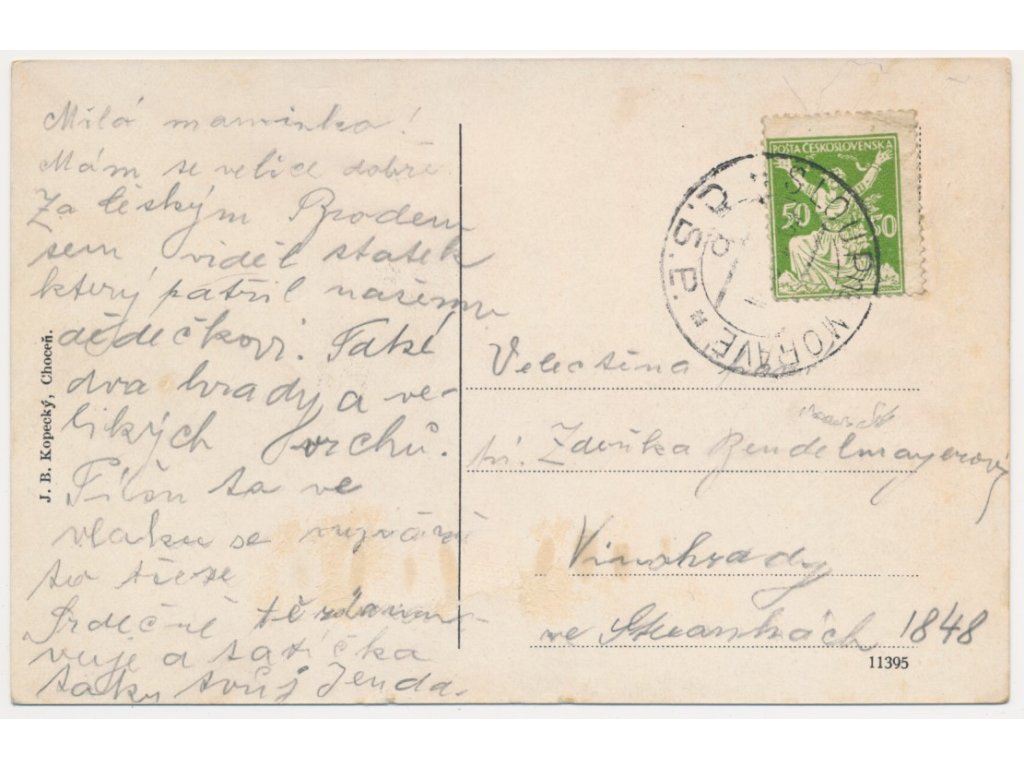 Milá maminko!
Mám se velice dobře
Za českým Brodem
sem viděl statek
který patřil našemu
dědečkovi. Také
dva hrady a ve-
likých vrchů.
Píšu ta ve
vlaku se
to třese
Srdečně tě
vuje a tatíčka
taky tvůj Jenda.
J. B. Kopecký, Choceň.
POŠTA ČESKOSLOVENSKA
50 50
SLOUP NA MORAVĚ
Č.S.P.
Velectěná paní
Zdeňka Bendelmayerová
Vinohrady
ve Struhách 1848
11395